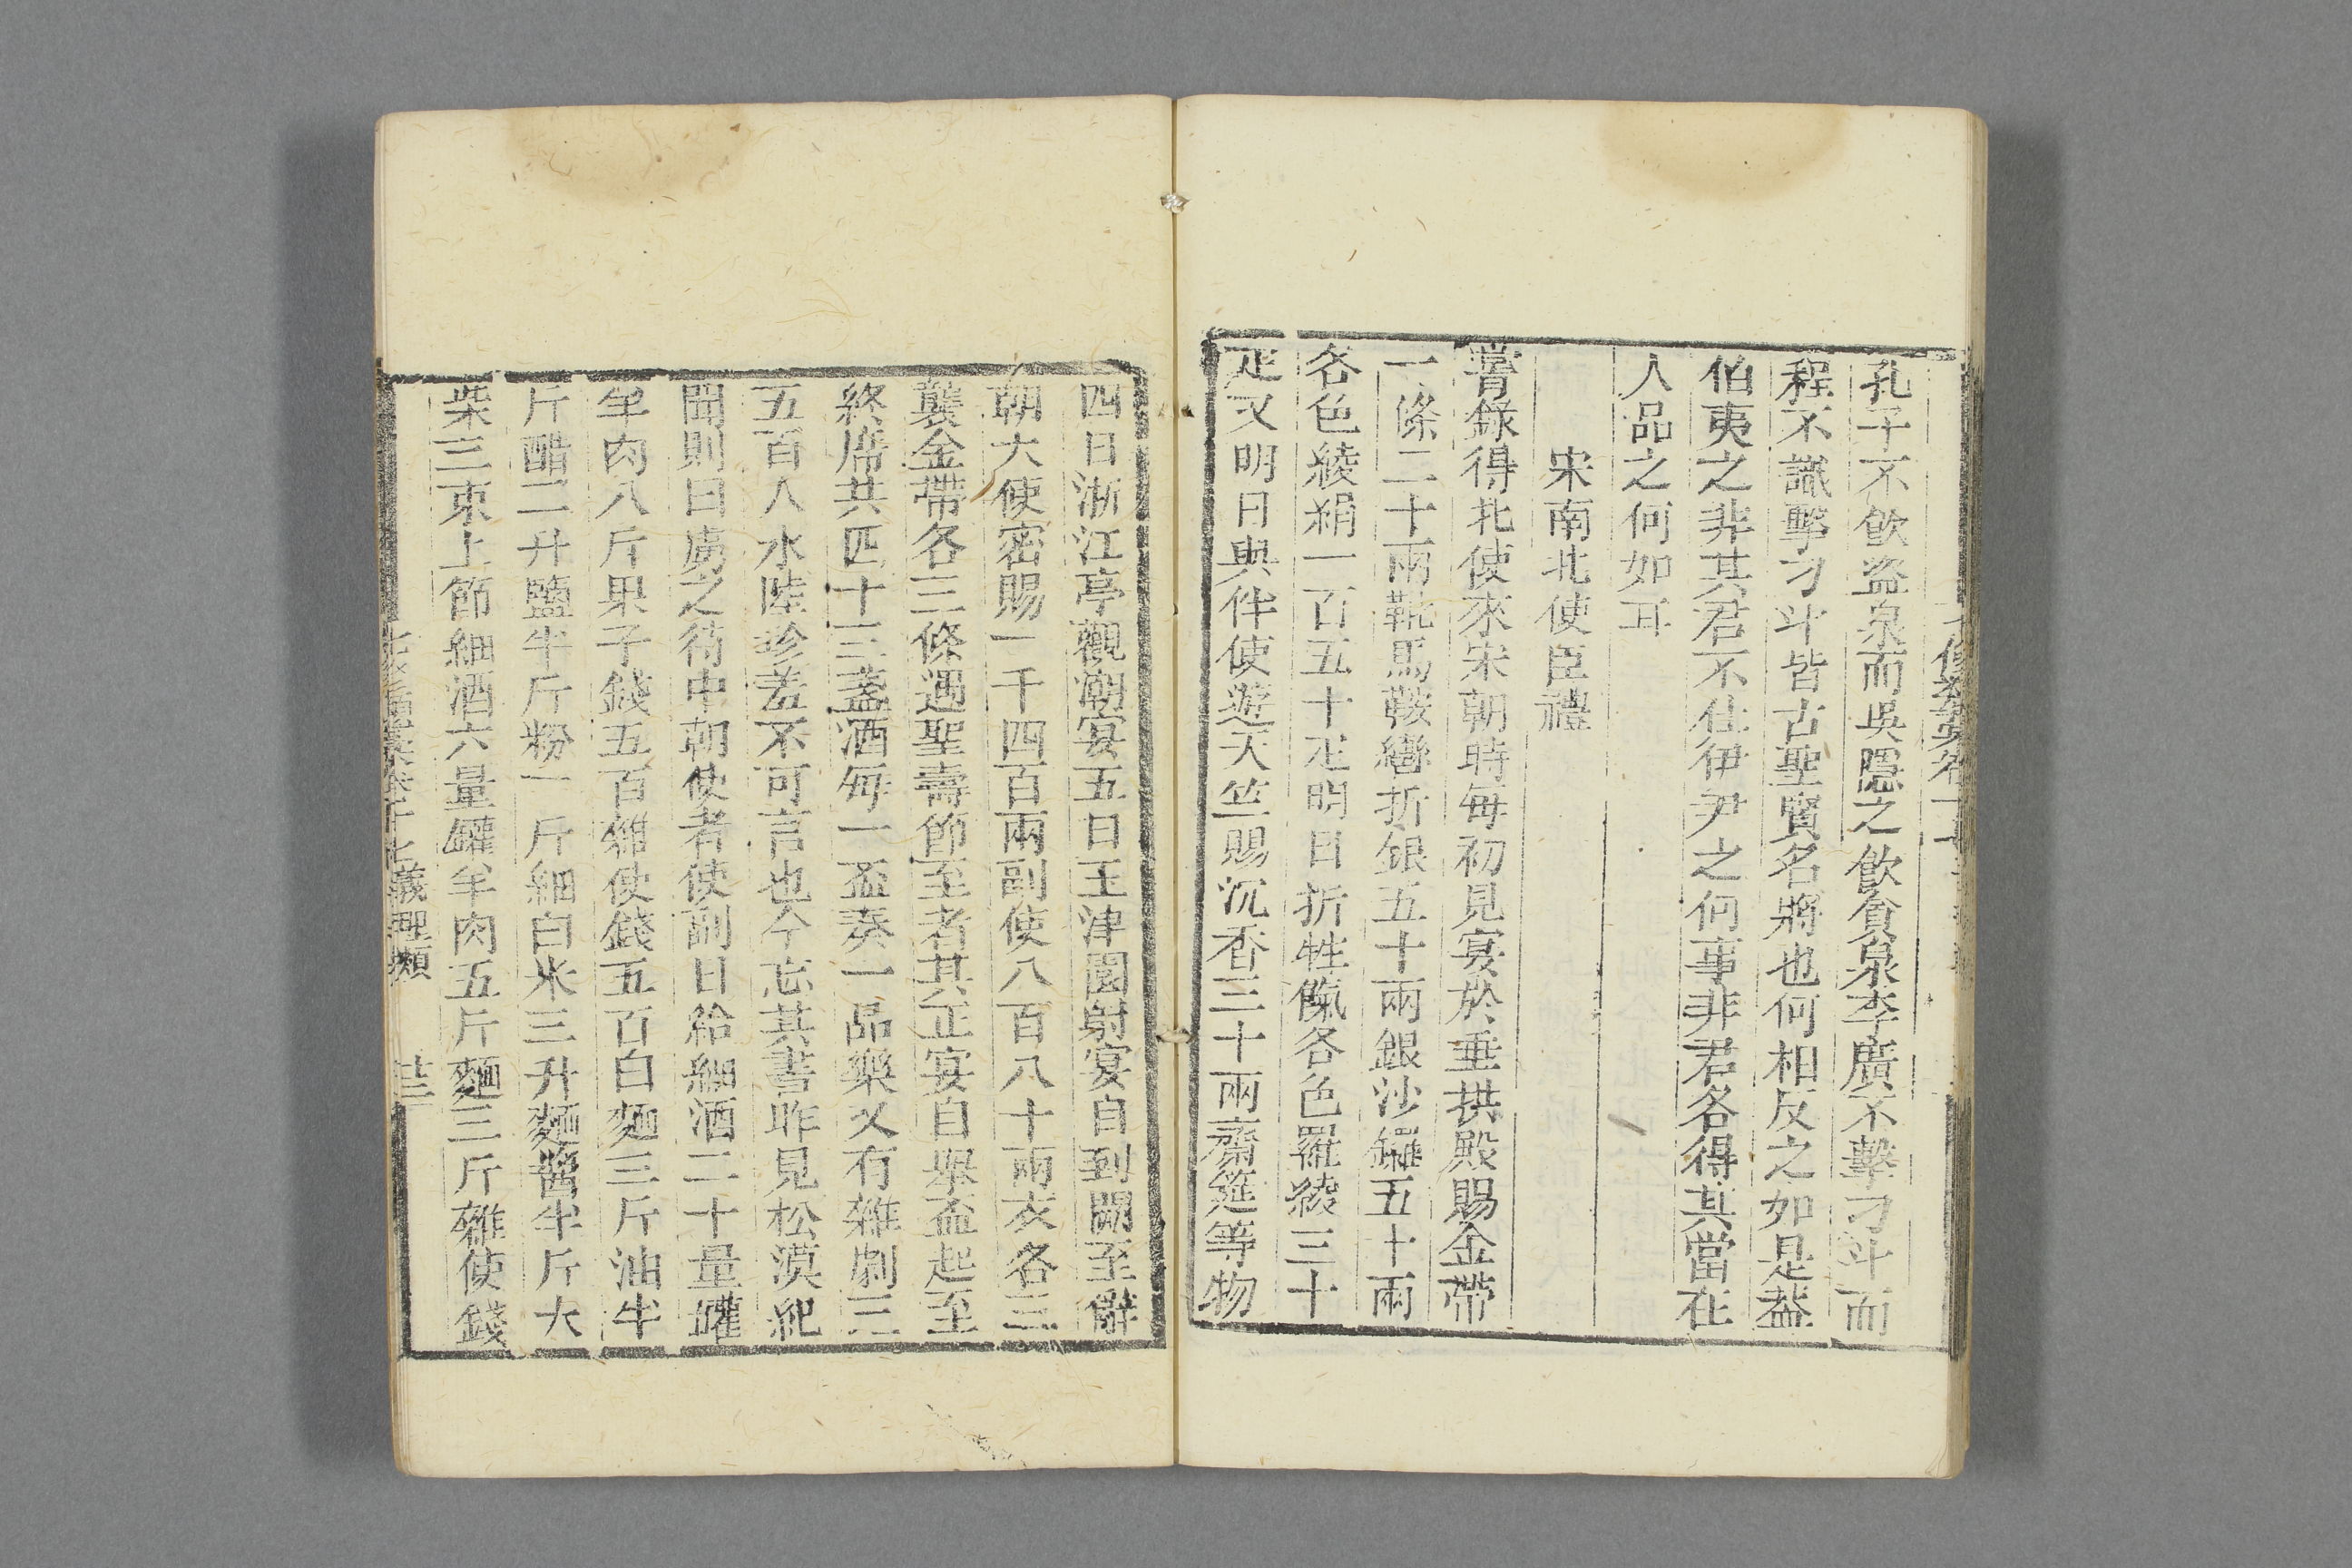 孔子不飲盗泉而吳隱之飲貪泉李廣不擊刁斗而
程不識擊刁斗皆古聖賢名將也何相反之如是葢
伯夷之非其君不仕伊尹之何事非君各得其當在
人品之何如耳
宋南北使臣禮
嘗錄得北使來宋朝時每初見宴於垂拱殿賜金帶
一條二十兩靴馬鞍轡折銀五十兩銀沙鑼五十兩
各色綾絹一百五十疋明日折牲餼各色羅綾三十
疋又明日與伴使遊天竺賜沉香三十兩齋筵等物
四日浙江亭觀潮宴五日玉津園射宴自到闕至辭
朝大使密賜一千四百兩副使八百八十兩衣各三
襲金帶各三條遇聖壽節至者其正宴自舉盃起至
終席共四十三盞酒每一盃奏一品樂又有雜劇三
五百人水陸珍羞不可言也今忘其書昨見松漠紀
聞則曰虜之待中朝使者使副日給細酒二十量罐
羊肉八斤果子錢五百雜使錢五百白麵三斤油半
斤醋二升鹽半斤粉一斤細白米三升麵醬半斤大
柴三束上節細酒六量罐羊肉五斤麵三斤雜使錢
義理類